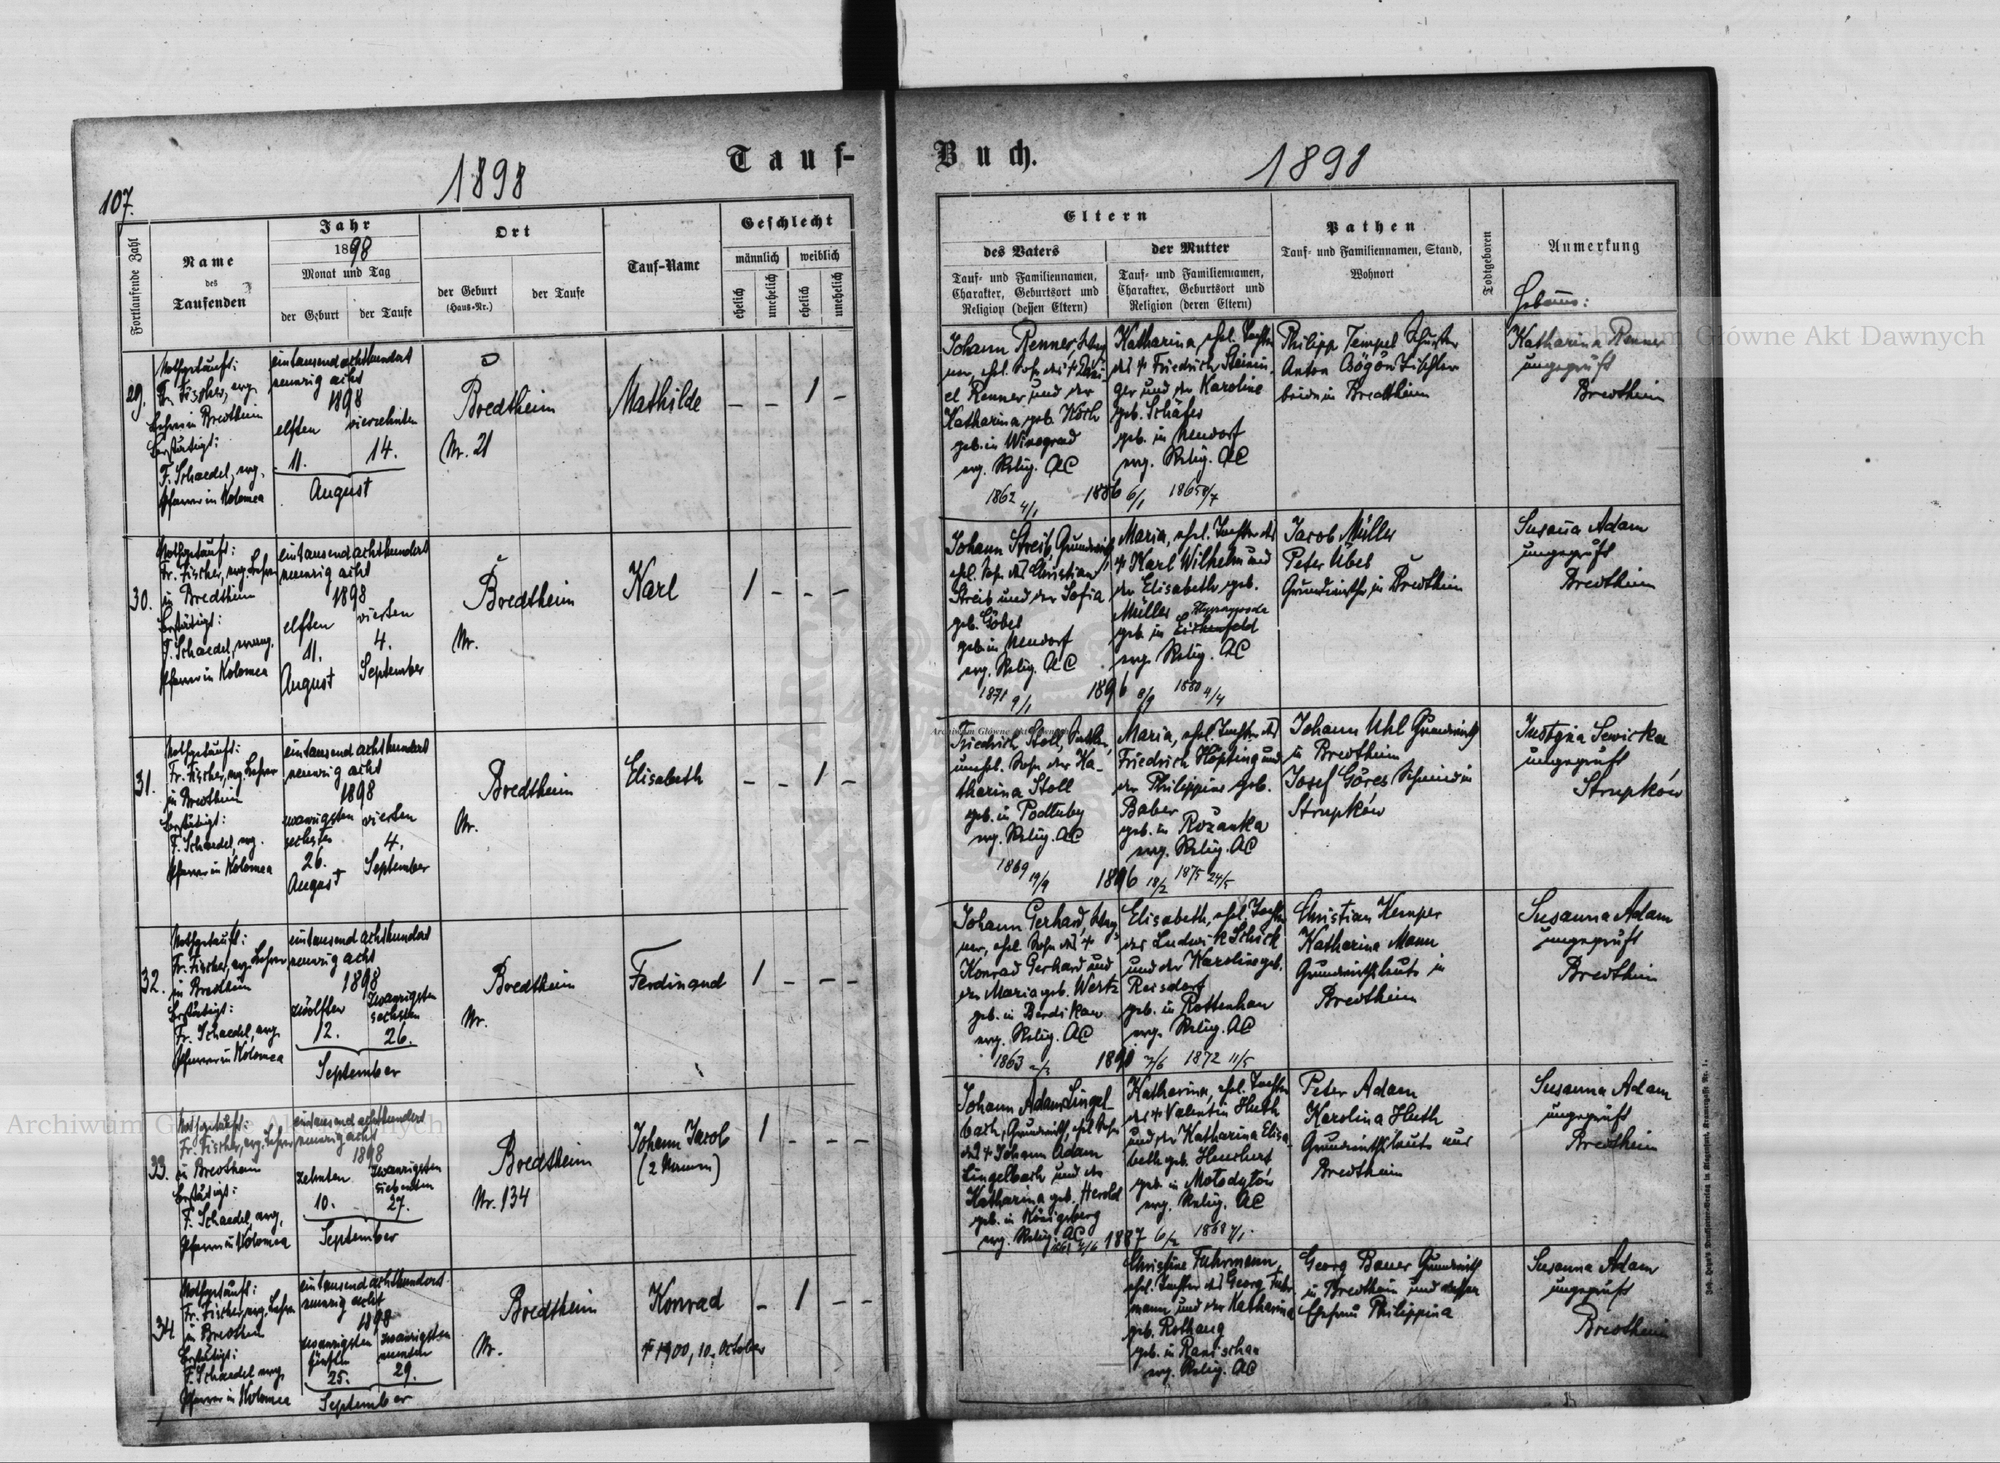 107.
1898
Tauf-
Buch.
1898
Fortlaufende Zahl
Name
des
Taufenden
Jahr
1898
Monat und Tag
der Geburt
der Taufe
Ort
der Geburt
(Haus-Nr.)
der Taufe
Tauf-Name
Geschlecht
männlich
weiblich
ehelich
unehelich
ehelich
unehelich
Eltern
des Vaters
Tauf- und Familiennamen,
Charakter, Geburtsort und
Religion (dessen Eltern)
der Mutter
Tauf- und Familiennamen,
Charakter, Geburtsort und
Religion (deren Eltern)
Pathen
Tauf- und Familiennamen, Stand,
Wohnort
Todtgeboren
Anmerkung
29.
Nothgetauft:
Fr. Fischer, evg.
Lehrer in Bredtheim
Bestätigt:
F. Schaedel, evg.
Pfarrer in Kolomea
eintausend achthundert
neunzig acht
1898
elften
vierzehnten
11.
14.
August
Bredtheim
Nr. 21
Mathilde
– – 1 –
Johann Renner,
ner, ehel. Sohn des
el Renner und der
Katharina geb. Koch
geb. in Winograd
evg. Relig. AC
1862 4/1
1886 6/1
Katharina, ehel. Tochter
des † Friedrich Steinin-
ger und der Karoline
geb. Schäfer
geb. in Neudorf
evg. Relig. AC
Philipp Tempel Schuster
Anton Tischler
beide in Bredtheim
Katharina Renner
ungeprüft
Bredtheim
30.
Nothgetauft:
Fr. Fischer, evg. Lehrer
in Bredtheim
Bestätigt:
F. Schaedel, evang.
Pfarrer in Kolomea
eintausend achthundert
neunzig acht
1898
elften
vierten
11.
4.
August
September
Bredtheim
Nr.
Karl
1 – – –
Johann Streib, Grundwirth
ehel. Sohn des Christian
Streib und der Sofia
geb. Göbel
geb. in Neudorf
evg. Relig. AC
1871 9/1
1896 8/9
Maria, ehel. Tochter des
† Karl Wilhelm und
der Elisabeth geb.
Müller
geb. in
evg. Relig. AC
1880 4/4
Jacob Müller
Peter Übel
Grundwirthe in Bredtheim
Susanna Adam
ungeprüft
Bredtheim
31.
Nothgetauft:
Fr. Fischer, evg. Lehrer
in Bredtheim
Bestätigt:
F. Schaedel, evg.
Pfarrer in Kolomea
eintausend achthundert
neunzig acht
1898
zwanzigsten
sechsten
vierten
26.
4.
August
September
Bredtheim
Nr.
Elisabeth
– – 1 –
Friedrich Stoll,
unehel. Sohn der Ka-
tharina Stoll
geb. in Podłuby
evg. Relig. AC
1869 19/9
1896 18/2
Maria, ehel. Tochter des
Friedrich Köpting und
der Philippine geb.
Baber
geb. in Rożanka
evg. Relig. AC
1875 24/5
Johann Uhl Grundwirth
in Bredtheim
Josef Göres Schmied in
Strupków
ungeprüft
Strupków
32.
Nothgetauft:
Fr. Fischer, evg. Lehrer
in Bredtheim
Bestätigt:
Fr. Schaedel, evg.
Pfarrer in Kolomea
eintausend achthundert
neunzig acht
1898
zwölften
zwanzigsten
sechsten
12.
26.
September
Bredtheim
Nr.
Ferdinand
1 – – –
Johann Gerhard,
ner, ehel. Sohn des †
Konrad Gerhard und
der Maria geb. Wertz
geb. in Berdikau
evg. Relig. AC
1863
Elisabeth, ehel. Tochter
des Ludwik Schick
und der Karoline geb.
Reisdorf
geb. in Rottenhan
evg. Relig. AC
1872 11/5
Christian Kemper
Katharina Mann
Grundwirthsleute in
Bredtheim
Susanna Adam
ungeprüft
Bredtheim
33.
Nothgetauft:
Fr. Fischer, evg. Lehrer
in Bredtheim
Bestätigt:
F. Schaedel, evg.
Pfarrer in Kolomea
eintausend achthundert
neunzig acht
1898
zehnten
zwanzigsten
siebenten
10.
27.
September
Bredtheim
Nr. 134
Johann Jacob
(2 Namen)
1 – – –
Johann Adam Lingel-
bach, Grundwirth, ehel. Sohn
des † Johann Adam
Lingelbach und der
Katharina geb. Herold
geb. in Königsberg
evg. Relig. AC
1887 6/2
Katharina, ehel. Tochter
des † Valentin Huth
und der Katharina Elisa-
beth geb.
geb. in Mołodyłów
evg. Relig. AC
1868
Peter Adam
Karolina Huth
Grundwirthsleute aus
Bredtheim
Susanna Adam
ungeprüft
Bredtheim
34
Nothgetauft:
Fr. Fischer, evg. Lehrer
in Bredtheim
Bestätigt:
F. Schaedel evg.
Pfarrer in Kolomea
eintausend achthundert
neunzig acht
1898
zwanzigsten
fünften
zwanzigsten
neunten
25.
29.
September
Bredtheim
Nr.
Konrad
† 1900, 10. October
– 1 – –
Christine Fuhrmann,
ehel. Tochter des Georg Fuhr-
mann und der Katharina
geb. Rothaug
geb. in Ranischau
evg. Relig. AC
Georg Bauer Grundwirth
in Bredtheim und dessen
Ehefrau Philippina
Susanna Adam
ungeprüft
Bredtheim
Archiwum Główne Akt Dawnych
Archiwum Główne Akt Dawnych
Archiwum Główne Akt Dawnych